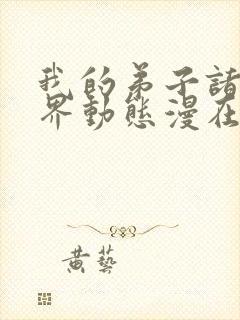 我的弟子諸
界動態漫在
黄藝